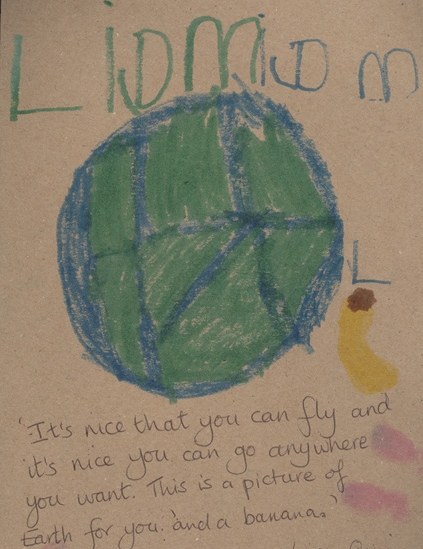 Liam iam
L
'It's nice that you can fly and
it's nice you can go anywhere
you want. This is a picture of
Earth for you. and a banana.'